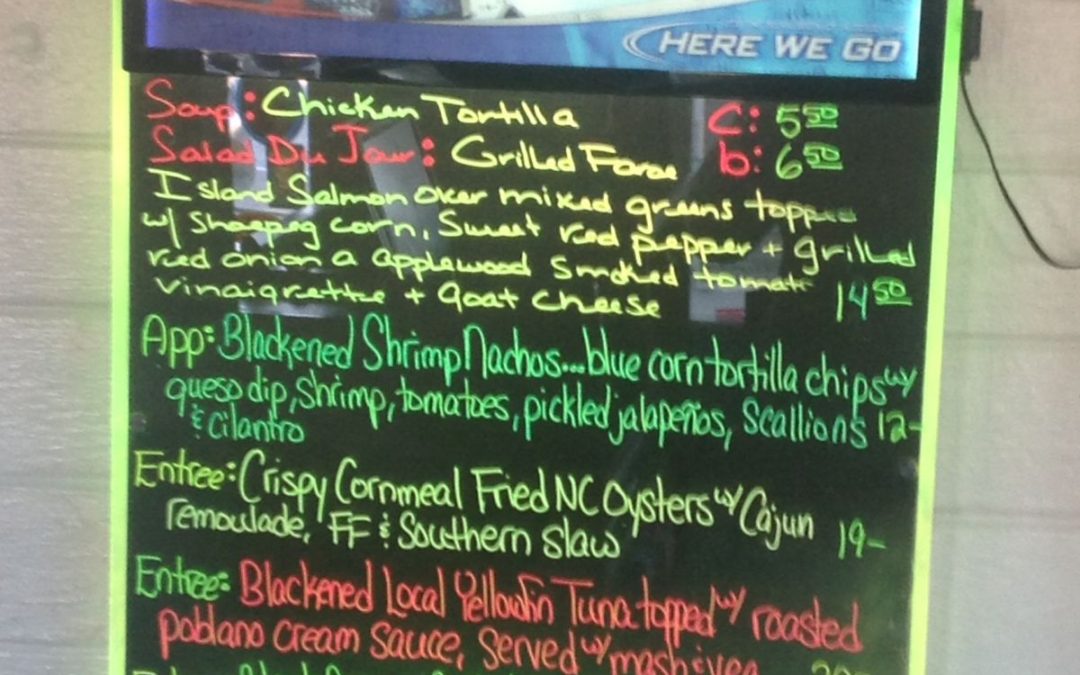 HERE WE GO
Soup: Chicken Tortilla C: 5.50
Salad Du Jour: Grilled Faroe b: 6.50
Island Salmon over mixed greens topped
w/ Shoepeg corn, Sweet red pepper + grilled
red onion a applewood smoked tomato
vinaigrette + goat cheese 14.50
App: Blackened Shrimp Nachos...blue corn tortilla chips w/
queso dip, shrimp, tomatoes, pickled jalapeños, scallions 12-
& cilantro
Entree: Crispy Cornmeal Fried NC Oysters w/ Cajun
remoulade, FF & Southern slaw 19-
Entree: Blackened Local Yellowfin Tuna topped w/ roasted
poblano cream sauce, served w/ mash & veg